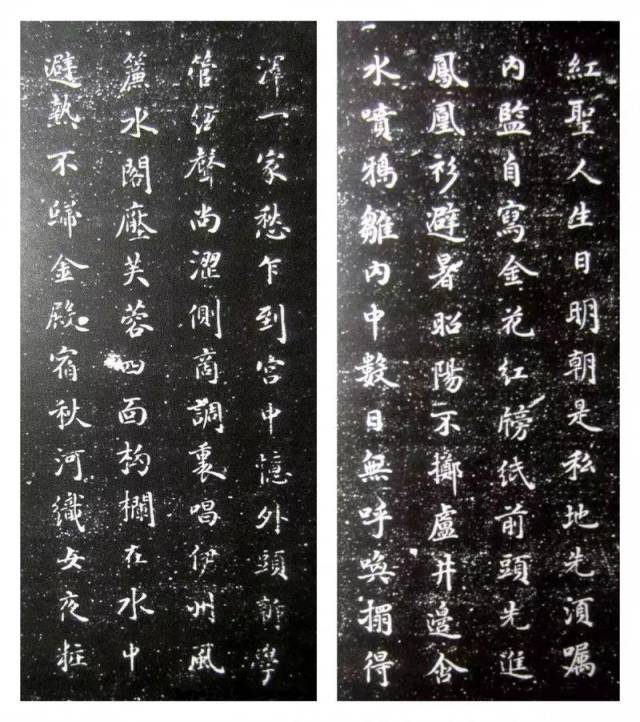 紅聖人生日明朝是私地先須囑
内監自寫金花紅牓紙前頭先進
鳳凰衫避暑昭陽不擲盧井邊含
水噴鴉雛内中數日無呼喚搨得
渾一家愁乍到宮中憶外頭師學
管絃聲尚澀側商調裏唱伊州風
簾水閣壓芙蓉四面枸欄在水中
避熱不歸金殿宿秋河織女夜粧